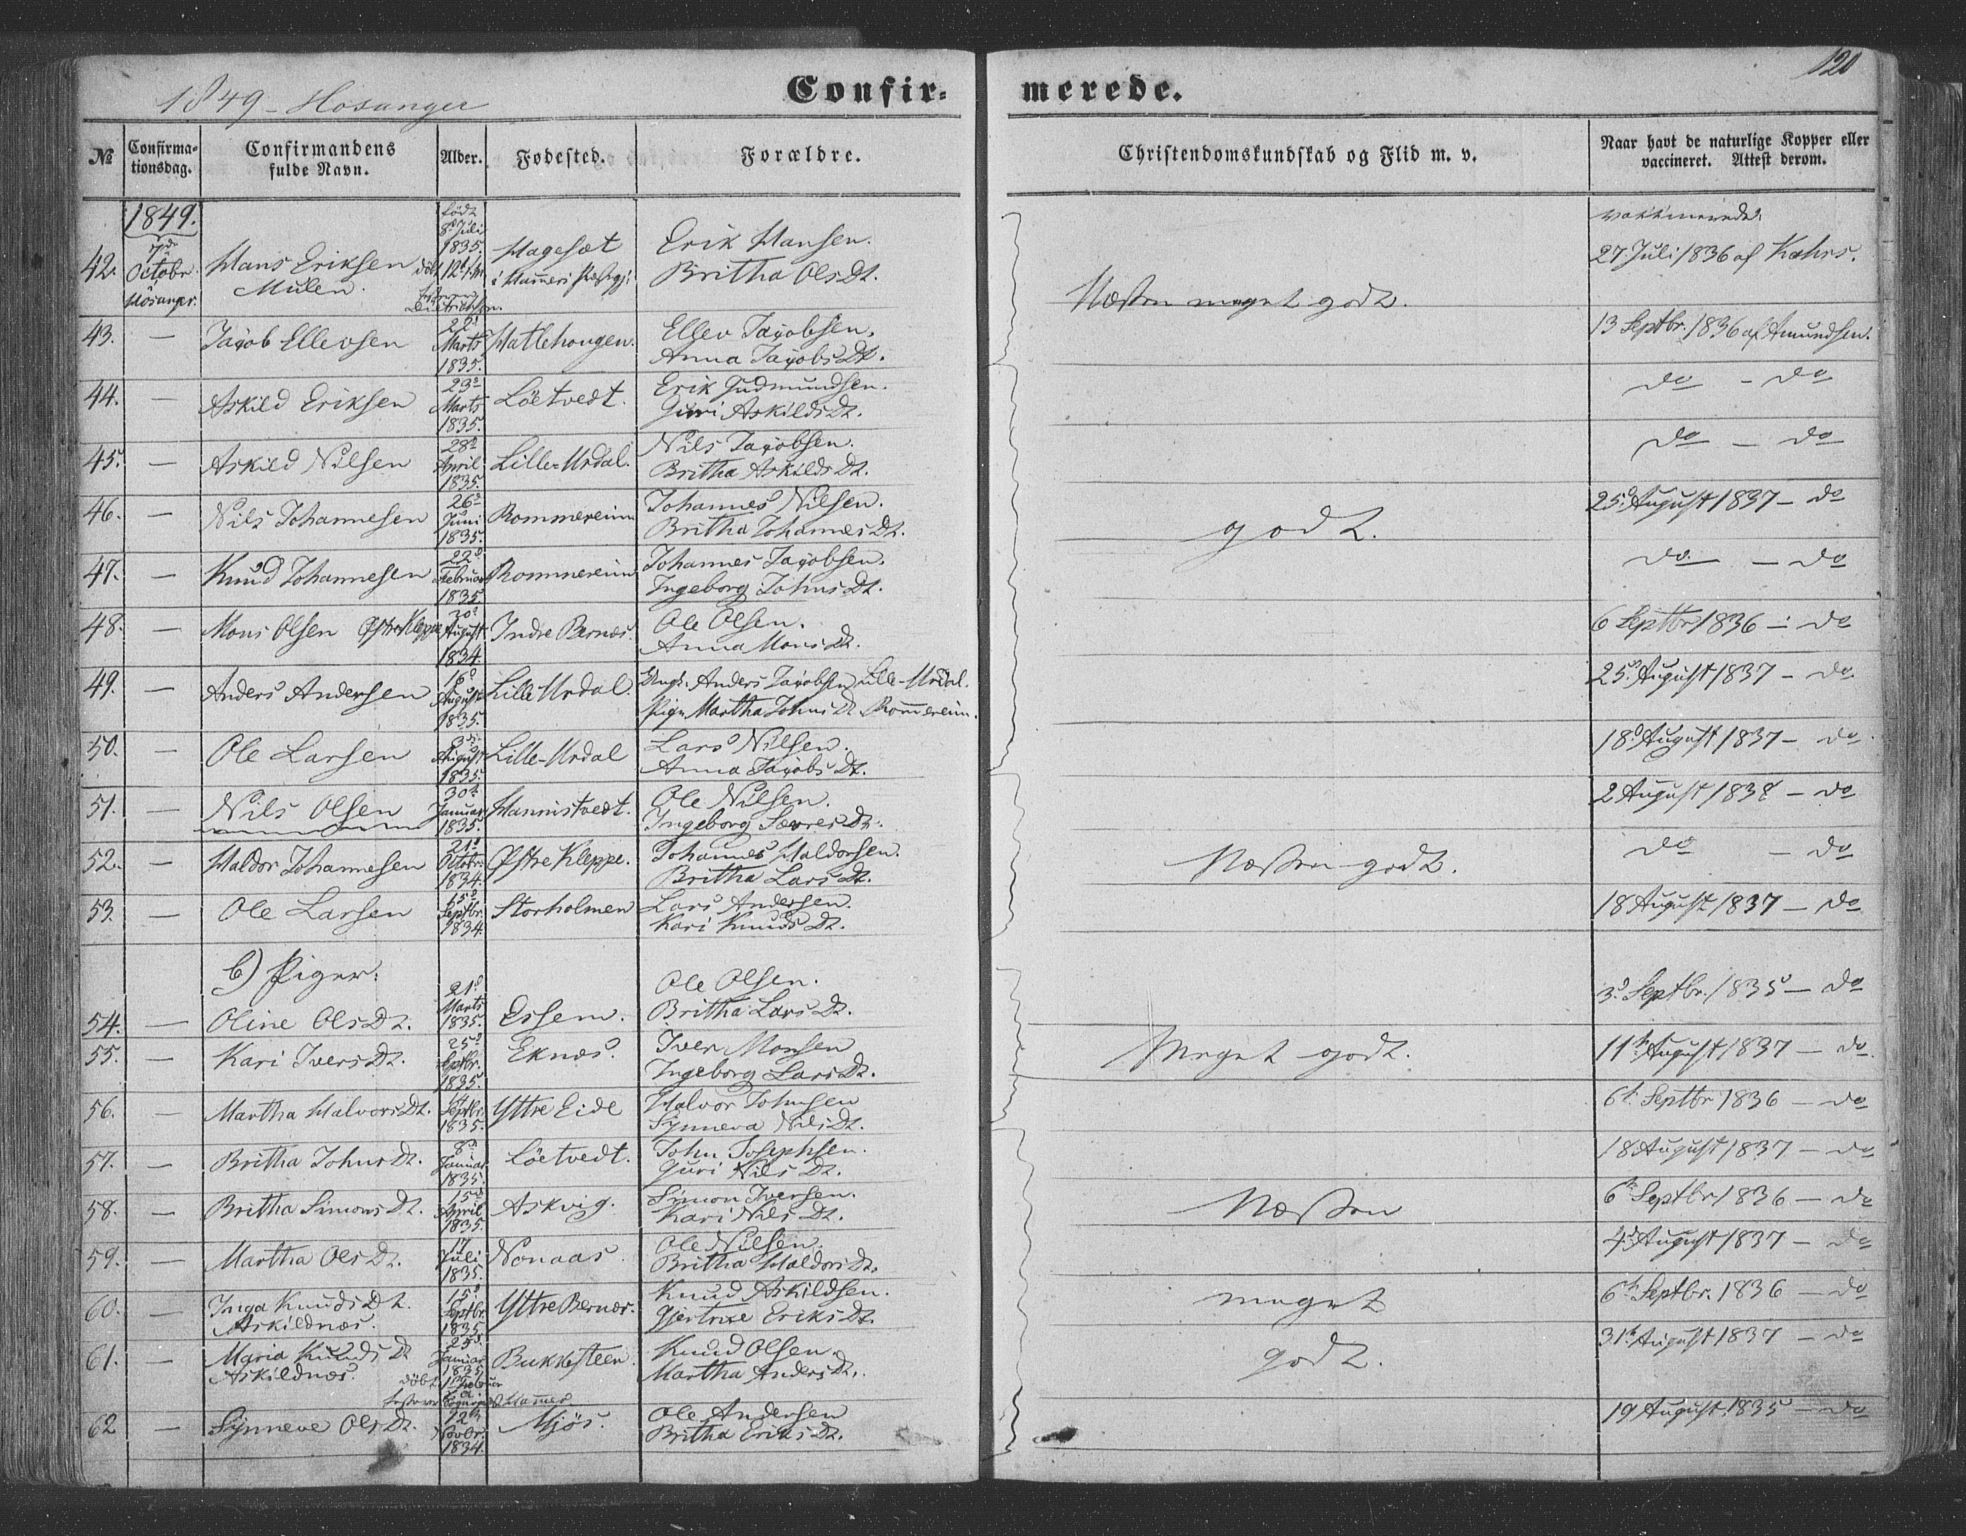 120
1849 - Hosanger
Confir- merede.
№ Confirma-tionsdag. Confirmandens fulde Navn. Alder. Fødested. Forældre. Christendomskundskab og Flid m. v. Naar havt de naturlige Kopper eller vaccineret. Attest derom.
1849.
7de Octobr.
42. Hans Eriksen Mulen. født 8de Juli 1835. døbt 12te Hagesæt i Hammers Erik Hansen. Britha Ols Dt. Næsten meget godt. vakkineredt. 27 Juli 1836 af Kahrs.
43. — Jacob Ellevsen 22d Marts 1835. Hatlehougen. Ellev Jacobsen. Anna Jacobs Dt. 13 Septbr. 1836 af Amundsen.
44. — Askild Eriksen 23d Marts 1835. Löetvedt. Erik Gudmundsen. Guri Askilds Dt. do - do
45. — Askild Nilsen 28d April 1835. Lille-Urdal. Nils Jacobsen. Britha Askilds Dt. do - do
46. — Nils Johannesen 26d Juni 1835. Rommereim Johannes Nilsen. Britha Johannes Dt. godt. 25d August 1837 - do
47. — Knud Johannesen 22d Februar 1835 Rommereim Johannes Jacobsen. Ingeborg Johns Dt. do. - do
48. — Mons Olsen Østre Kleppe 30d August 1834. Indre Bernæs. Ole Olsen. Anna Mons Dt. 6 Septbr 1836 - do
49. — Anders Andersen 16d August 1835. Lille Urdal. Ungk. Anders Jacobsen Lille-Urdal. Pige Martha Johns Dt Rommereim. 25d August 1837 - do.
50. — Ole Larsen 3d August 1835. Lille-Urdal Lars Nilsen. Anna Jacobs Dt. 18d August 1837 - do.
51. — Nils Olsen 30d Januar 1835. Hannistvedt. Ole Nilsen. Ingeborg Sævres Dt. 2 August 1838 - do
52. — Haldor Johannesen 21d Octobr. 1834. Østre Kleppe. Johannes Haldorsen. Britha Lars Dt. Næsten godt. do - do
53. — Ole Larsen 15d Septbr. 1834. Storholmen Lars Andersen. Kari Knuds Dt. 18 August 1837 - do
b) Piger.
54. — Oline Ols Dt. 21d Marts 1835. Essem. Ole Olsen. Britha Lars Dt. 3d Septbr. 1835 - do
55. — Kari Ivers Dt. 25d Septbr. 1835. Eknæs. Iver Monsen Ingeborg Lars Dt. Meget godt. 11te August 1837 - do.
56. — Martha Halvors Dt. Septbr. 1835. Yttre Eide Halvor Johnsen Synneva Nils Dt. 6te Septbr 1836 - do
57. — Britha Johns Dt. 8d Januar 1835. Löetvedt. John Josephsen. Guri Nils Dt. 18 August 1837 - do
58. — Britha Simons Dt. 15d April 1835. Askvig. Simon Iversen. Kari Nils Dt. Næsten 6te Septbr 1836 - do
59. — Martha Ols Dt. 17 Juli 1835. Nonaas. Ole Nilsen. Britha Haldors Dt. 4d August 1837 - do
60. — Inga Knuds Dt. Askildnæs. 15d Septbr 1835. Yttre Bernæs. Knud Askildsen. Gjertrue Eriks Dt. meget 6te Septbr. 1836 - do
61. — Maria Knuds Dt Askildnæs. 25d Januar 1835. døbt Februar Bukkesteen. Knud Olsen. Martha Anders Dt. godt. 31te August 1837 - do
62 — Synneve Ols Dt. 12te Novbr. 1834. Mjös. Ole Andersen Britha Eriks Dt. 19 August 1835 - do